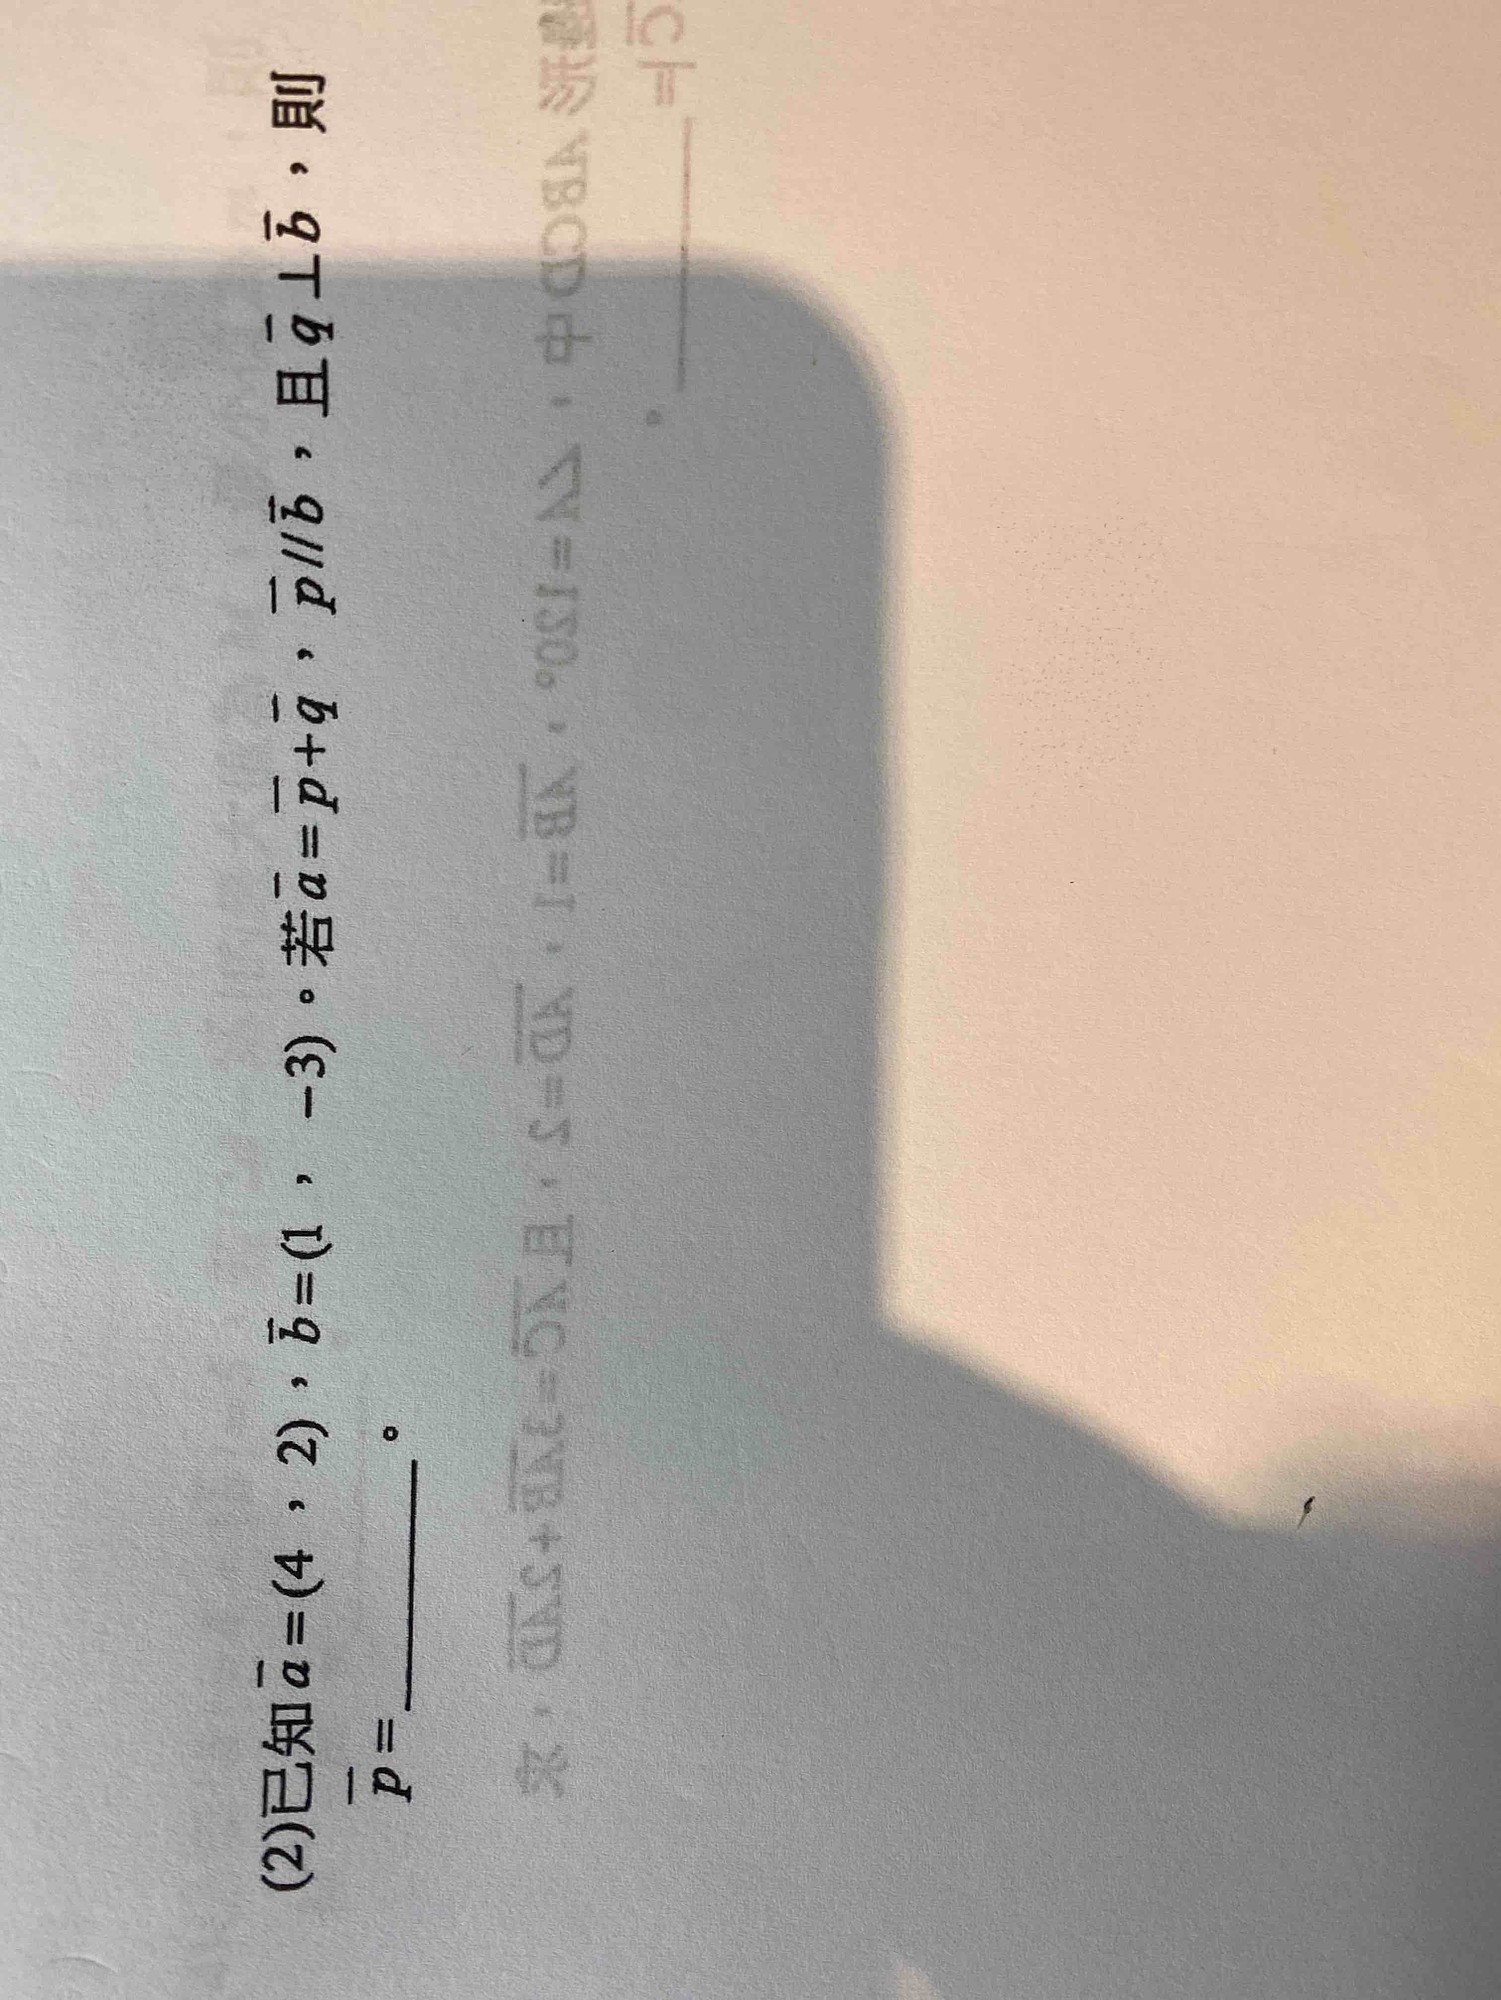 (2)已知a̅=(4，2)，b̅=(1，−3)。若a̅=p̅+q̅，p̅//b̅，且q̅⊥b̅，則
p̅=______。